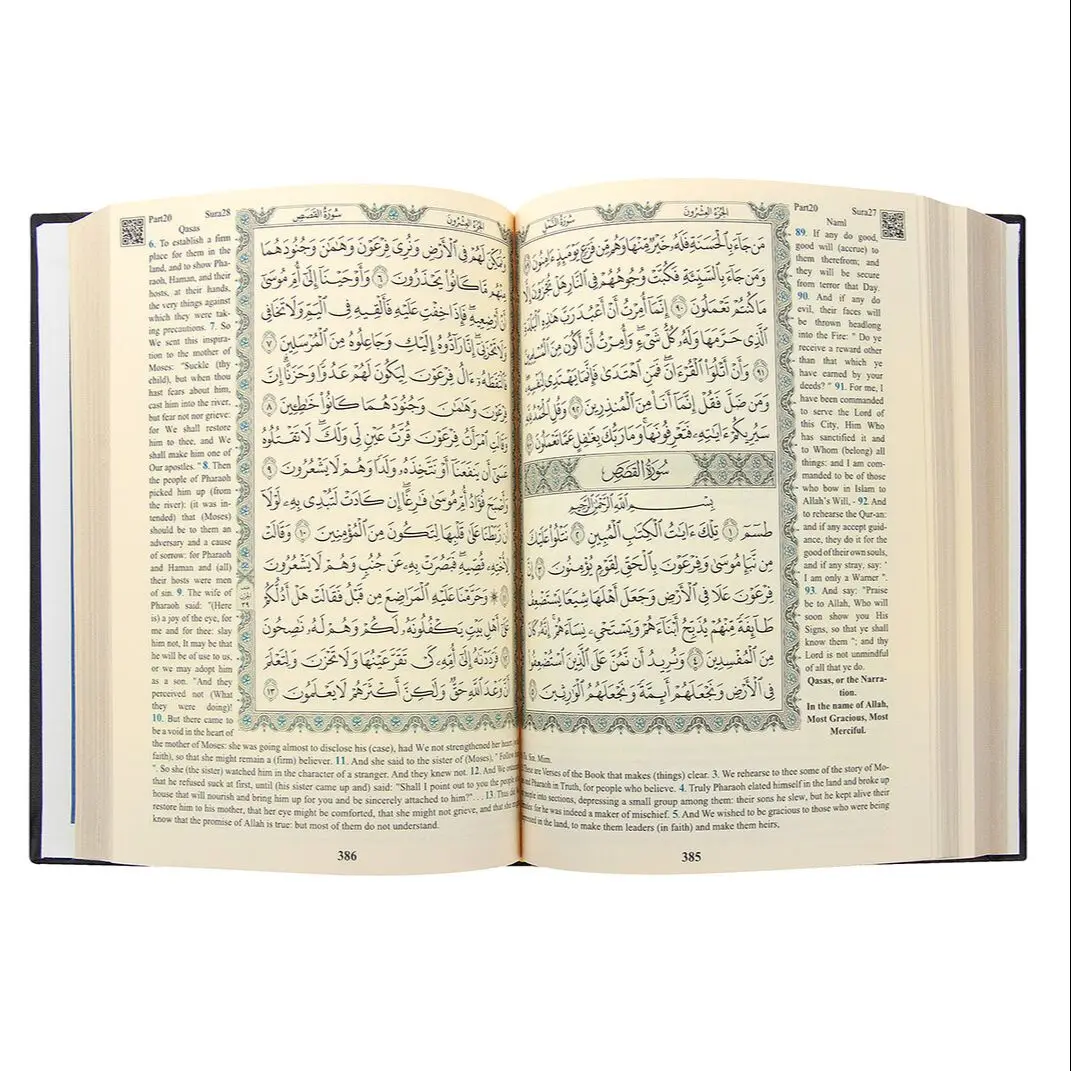 Part20 Sura27
Naml
89. If any do good,
good will (accrue) to
them therefrom; and
they will be secure
from terror that Day.
90. And if any do
evil, their faces will
be thrown headlong
into the Fire: " Do ye
receive a reward other
than that which ye
have earned by your
deeds? " 91. For me, I
have been commanded
to serve the Lord of
this City, Him Who
has sanctified it and
to Whom (belong) all
things: and I am com-
manded to be of those
who bow in Islam to
Allah's Will, - 92. And
to rehearse the Qur-an:
and if any accept guid-
ance, they do it for the
good of their own souls,
and if any stray, say: '
I am only a Warner ".
93. And say: "Praise
be to Allah, Who will
soon show you His
Signs, so that ye shall
know them "; and thy
Lord is not unmindful
of all that ye do.
Qasas, or the Narra-
tion.
In the name of Allah,
Most Gracious, Most
Merciful.
الجزء العشرون سورة النمل
مَن جَآءَ بِٱلْحَسَنَةِ فَلَهُۥ خَيْرٌ مِّنْهَا وَهُم مِّن فَزَعٍ يَوْمَئِذٍ ءَامِنُونَ
وَمَن جَآءَ بِٱلسَّيِّئَةِ فَكُبَّتْ وُجُوهُهُمْ فِى ٱلنَّارِ هَلْ تُجْزَوْنَ إِلَّا
مَا كُنتُمْ تَعْمَلُونَ ٩٠ إِنَّمَآ أُمِرْتُ أَنْ أَعْبُدَ رَبَّ هَٰذِهِ ٱلْبَلْدَةِ
ٱلَّذِى حَرَّمَهَا وَلَهُۥ كُلُّ شَىْءٍ ۖ وَأُمِرْتُ أَنْ أَكُونَ مِنَ ٱلْمُسْلِمِينَ
٩١ وَأَنْ أَتْلُوَا۟ ٱلْقُرْءَانَ ۖ فَمَنِ ٱهْتَدَىٰ فَإِنَّمَا يَهْتَدِى لِنَفْسِهِۦ ۖ
وَمَن ضَلَّ فَقُلْ إِنَّمَآ أَنَا۠ مِنَ ٱلْمُنذِرِينَ ٩٢ وَقُلِ ٱلْحَمْدُ لِلَّهِ
سَيُرِيكُمْ ءَايَٰتِهِۦ فَتَعْرِفُونَهَا ۚ وَمَا رَبُّكَ بِغَٰفِلٍ عَمَّا تَعْمَلُونَ ٩٣
سُورَةُ القَصَصِ
بِسْمِ ٱللَّهِ ٱلرَّحْمَٰنِ ٱلرَّحِيمِ
طسٓمٓ ١ تِلْكَ ءَايَٰتُ ٱلْكِتَٰبِ ٱلْمُبِينِ ٢ نَتْلُوا۟ عَلَيْكَ
مِن نَّبَإِ مُوسَىٰ وَفِرْعَوْنَ بِٱلْحَقِّ لِقَوْمٍ يُؤْمِنُونَ ٣ إِنَّ
فِرْعَوْنَ عَلَا فِى ٱلْأَرْضِ وَجَعَلَ أَهْلَهَا شِيَعًا يَسْتَضْعِفُ
طَآئِفَةً مِّنْهُمْ يُذَبِّحُ أَبْنَآءَهُمْ وَيَسْتَحْىِۦ نِسَآءَهُمْ ۚ إِنَّهُۥ كَانَ
مِنَ ٱلْمُفْسِدِينَ ٤ وَنُرِيدُ أَن نَّمُنَّ عَلَى ٱلَّذِينَ ٱسْتُضْعِفُوا۟
فِى ٱلْأَرْضِ وَنَجْعَلَهُمْ أَئِمَّةً وَنَجْعَلَهُمُ ٱلْوَٰرِثِينَ ٥
Sin. Mim.
are Verses of the Book that makes (things) clear. 3. We rehearse to thee some of the story of Mo-
and Pharaoh in Truth, for people who believe. 4. Truly Pharaoh elated himself in the land and broke up
people into sections, depressing a small group among them: their sons he slew, but he kept alive their
for he was indeed a maker of mischief. 5. And We wished to be gracious to those who were being
in the land, to make them leaders (in faith) and make them heirs,
385
Part20 Sura28
Qasas
6. To establish a firm
place for them in the
land, and to show Pha-
raoh, Haman, and their
hosts, at their hands,
the very things against
which they were tak-
ing precautions. 7. So
We sent this inspira-
tion to the mother of
Moses: "Suckle (thy
child), but when thou
hast fears about him,
cast him into the river,
but fear not nor grieve:
for We shall restore
him to thee, and We
shall make him one of
Our apostles. " 8. Then
the people of Pharaoh
picked him up (from
the river): (it was in-
tended) that (Moses)
should be to them an
adversary and a cause
of sorrow: for Pharaoh
and Haman and (all)
their hosts were men
of sin. 9. The wife of
Pharaoh said: "(Here
is) a joy of the eye, for
me and for thee: slay
him not, It may be that
he will be of use to us,
or we may adopt him
as a son. "And they
perceived not (What
they were doing)!
10. But there came to
be a void in the heart of
الجزء العشرون سورة القصص
وَنُمَكِّنَ لَهُمْ فِى ٱلْأَرْضِ وَنُرِىَ فِرْعَوْنَ وَهَٰمَٰنَ وَجُنُودَهُمَا
مِنْهُم مَّا كَانُوا۟ يَحْذَرُونَ ٦ وَأَوْحَيْنَآ إِلَىٰٓ أُمِّ مُوسَىٰٓ
أَنْ أَرْضِعِيهِ ۖ فَإِذَا خِفْتِ عَلَيْهِ فَأَلْقِيهِ فِى ٱلْيَمِّ وَلَا تَخَافِى
وَلَا تَحْزَنِىٓ ۖ إِنَّا رَآدُّوهُ إِلَيْكِ وَجَاعِلُوهُ مِنَ ٱلْمُرْسَلِينَ ٧
فَٱلْتَقَطَهُۥٓ ءَالُ فِرْعَوْنَ لِيَكُونَ لَهُمْ عَدُوًّا وَحَزَنًا ۗ إِنَّ
فِرْعَوْنَ وَهَٰمَٰنَ وَجُنُودَهُمَا كَانُوا۟ خَٰطِـِٔينَ ٨
وَقَالَتِ ٱمْرَأَتُ فِرْعَوْنَ قُرَّتُ عَيْنٍ لِّى وَلَكَ ۖ لَا تَقْتُلُوهُ
عَسَىٰٓ أَن يَنفَعَنَآ أَوْ نَتَّخِذَهُۥ وَلَدًا وَهُمْ لَا يَشْعُرُونَ ٩
وَأَصْبَحَ فُؤَادُ أُمِّ مُوسَىٰ فَٰرِغًا ۖ إِن كَادَتْ لَتُبْدِى بِهِۦ لَوْلَآ
أَن رَّبَطْنَا عَلَىٰ قَلْبِهَا لِتَكُونَ مِنَ ٱلْمُؤْمِنِينَ ١٠ وَقَالَتْ
لِأُخْتِهِۦ قُصِّيهِ ۖ فَبَصُرَتْ بِهِۦ عَن جُنُبٍ وَهُمْ لَا يَشْعُرُونَ
۞ وَحَرَّمْنَا عَلَيْهِ ٱلْمَرَاضِعَ مِن قَبْلُ فَقَالَتْ هَلْ أَدُلُّكُمْ
عَلَىٰٓ أَهْلِ بَيْتٍ يَكْفُلُونَهُۥ لَكُمْ وَهُمْ لَهُۥ نَٰصِحُونَ
فَرَدَدْنَٰهُ إِلَىٰٓ أُمِّهِۦ كَىْ تَقَرَّ عَيْنُهَا وَلَا تَحْزَنَ وَلِتَعْلَمَ
أَنَّ وَعْدَ ٱللَّهِ حَقٌّ وَلَٰكِنَّ أَكْثَرَهُمْ لَا يَعْلَمُونَ ١٣
the mother of Moses: she was going almost to disclose his (case), had We not strengthened her heart
faith), so that she might remain a (firm) believer. 11. And she said to the sister of (Moses), " Follow
". So she (the sister) watched him in the character of a stranger. And they knew not. 12. And We
that he refused suck at first, until (his sister came up and) said: "Shall I point out to you the people
house that will nourish and bring him up for you and be sincerely attached to him?". . . 13. Thus did
restore him to his mother, that her eye might be comforted, that she might not grieve, and that she
know that the promise of Allah is true: but most of them do not understand.
386